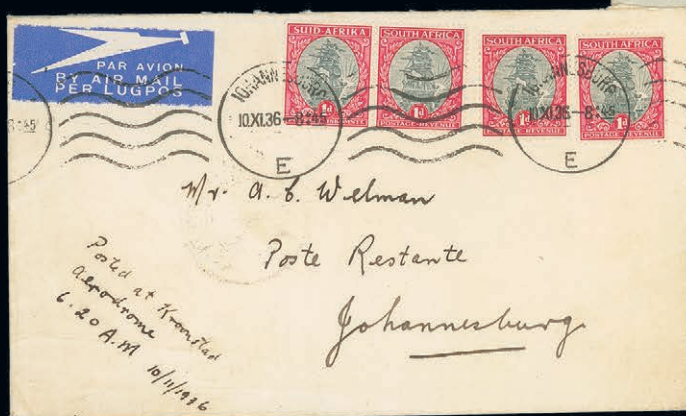 PAR AVION
BY AIR MAIL
PER LUGPOS
SUID-AFRIKA
SOUTH AFRICA
SOUTH AFRICA
SOUTH AFRICA
1d
1d
POSTAGE-REVENUE
1d
POSTAGE-REVENUE
1d
POSTAGE-REVENUE
JOHANNESBURG
10.XI.36-8:45
E
JOHANNESBURG
10.XI.36-8:45
E
Mr. A. E. Welman
Poste Restante
Johannesburg
Posted at Kroonstad
Aerodrome
6.20 A.M 10/11/1936